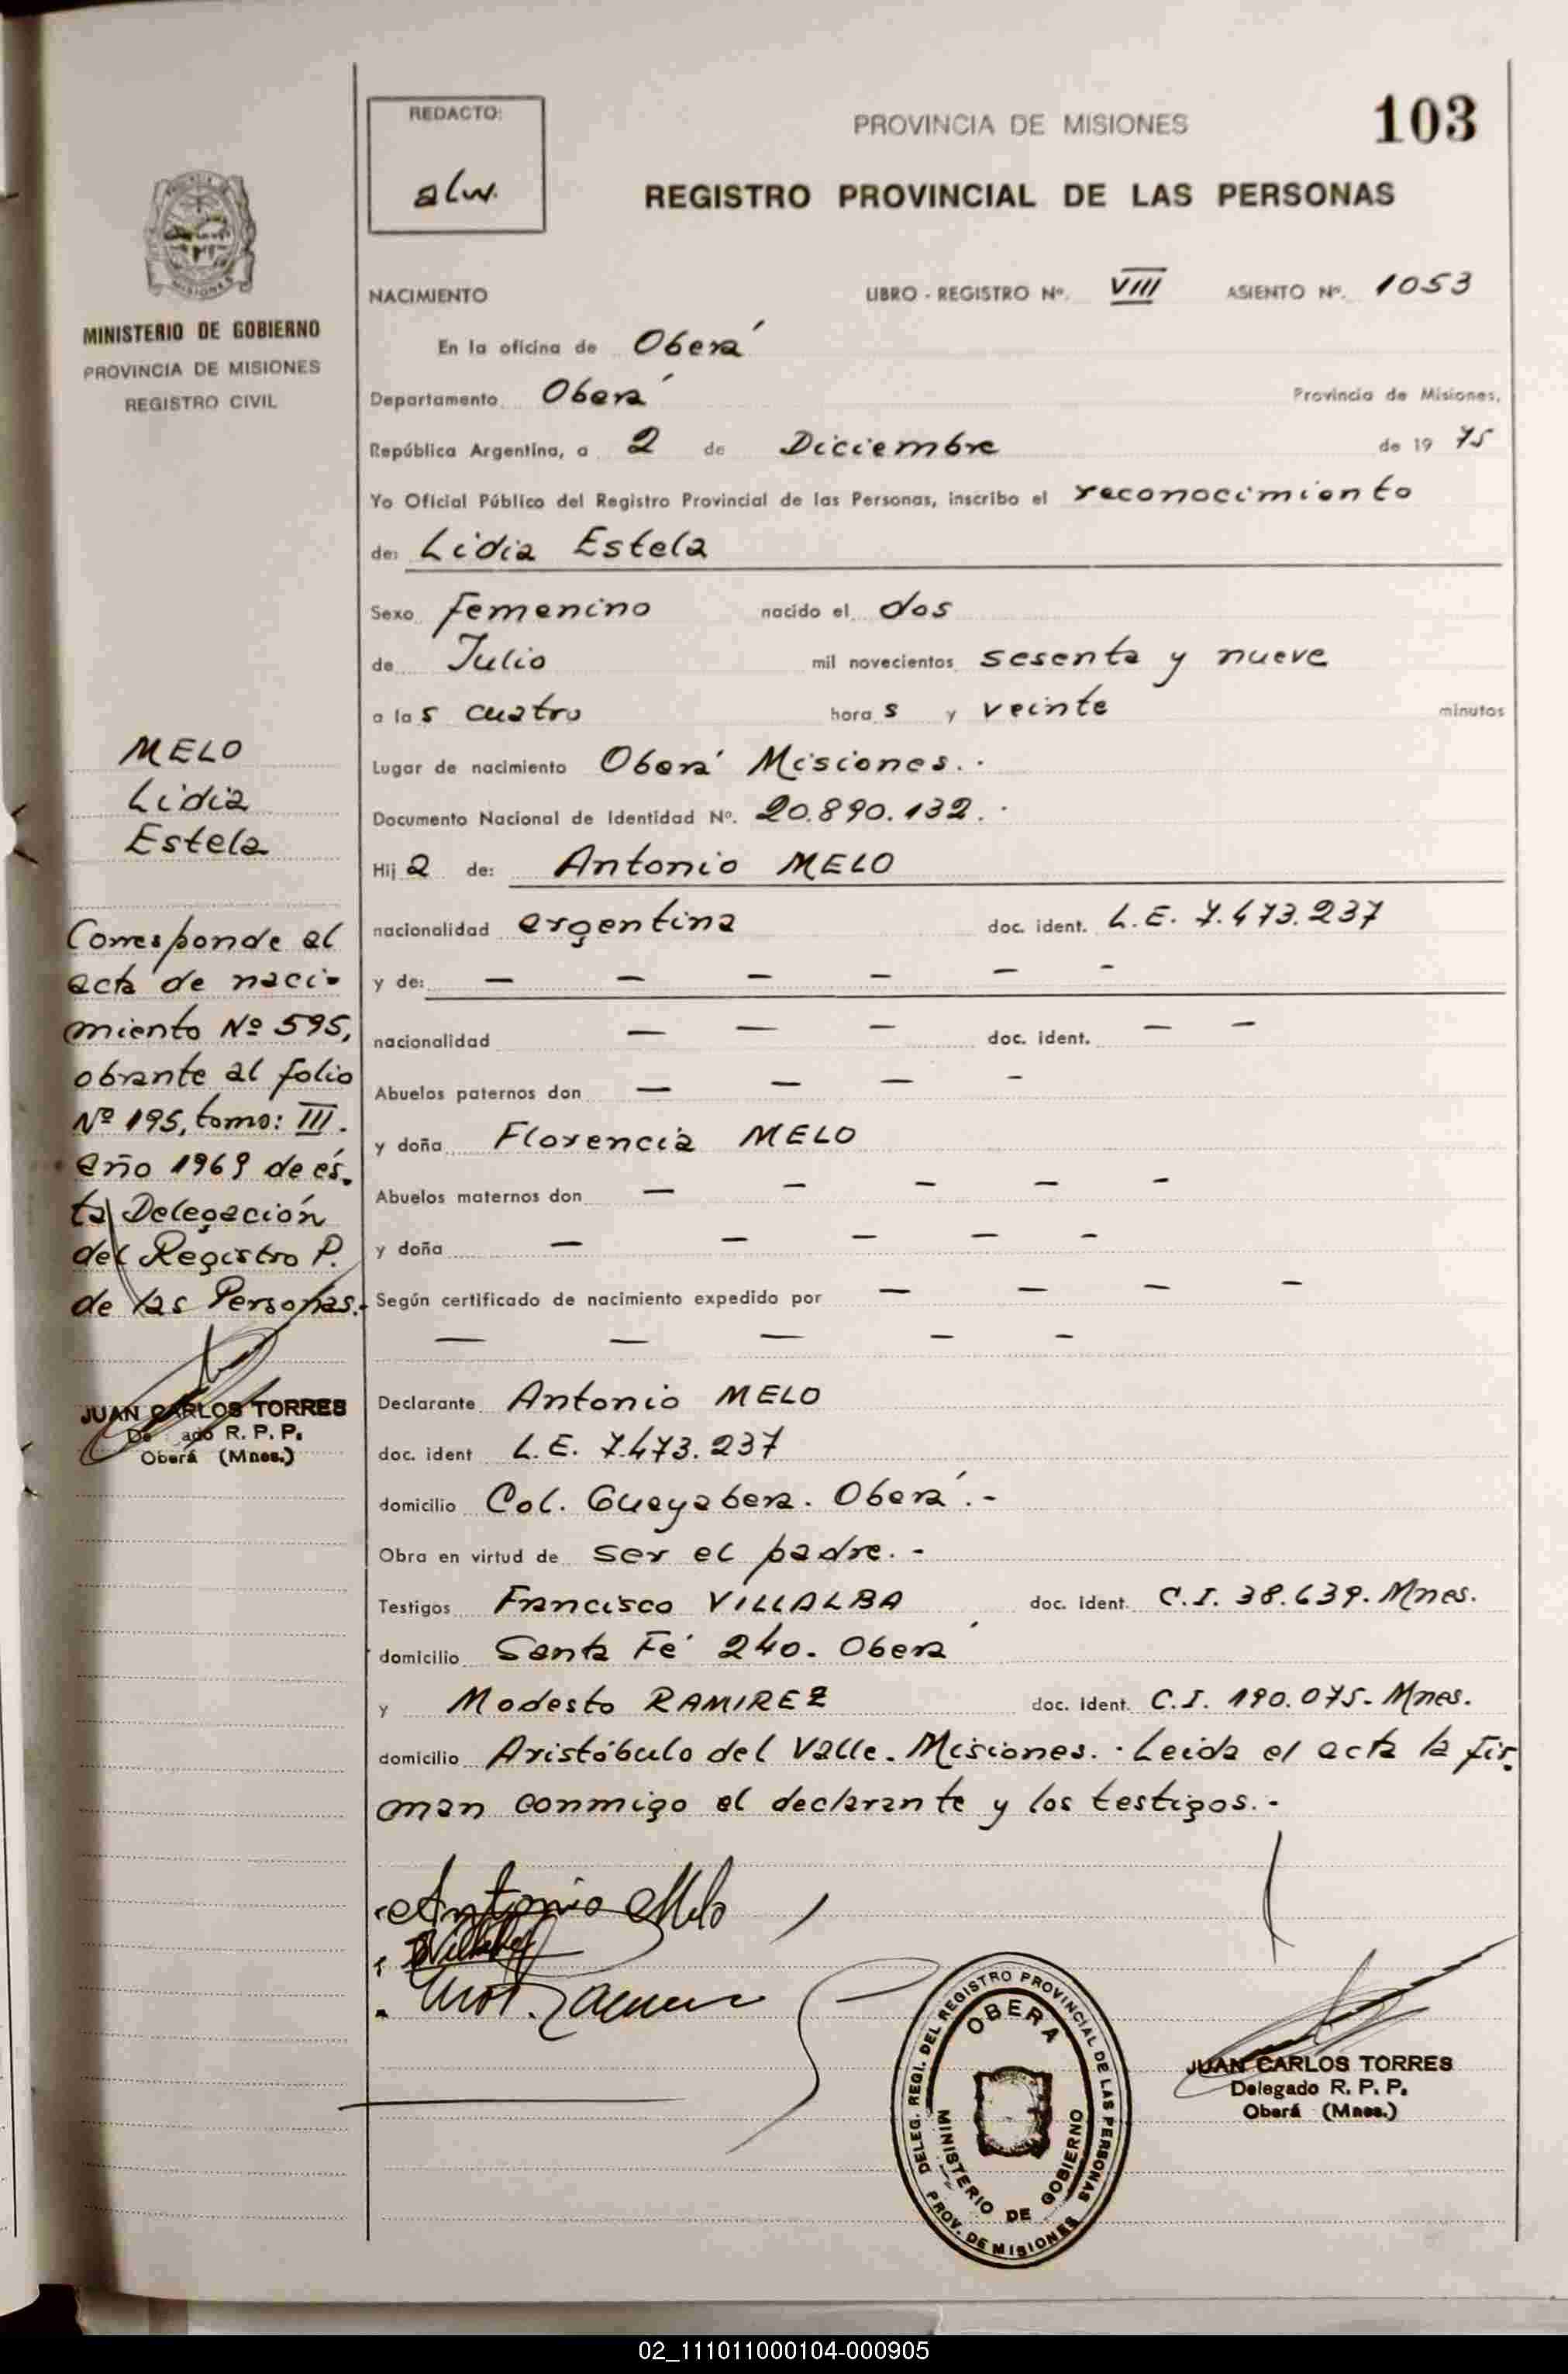 REDACTO:
alw.
PROVINCIA DE MISIONES
103
REGISTRO PROVINCIAL DE LAS PERSONAS
MINISTERIO DE GOBIERNO
PROVINCIA DE MISIONES
REGISTRO CIVIL
NACIMIENTO LIBRO - REGISTRO Nº. VIII ASIENTO Nº. 1053
En la oficina de Oberá
Departamento Oberá Provincia de Misiones,
República Argentina, a 2 de Diciembre de 1975
Yo Oficial Público del Registro Provincial de las Personas, inscribo el reconocimiento
de: Lidia Estela
Sexo femenino nacido el dos
de Julio mil novecientos sesenta y nueve
a las cuatro horas y veinte minutos
Lugar de nacimiento Oberá Misiones.-
Documento Nacional de Identidad Nº. 20.890.132.-
Hija de: Antonio MELO
nacionalidad argentina doc. ident. L.E. 7.473.237
y de: — — — — — —
nacionalidad — — — doc. ident. — —
Abuelos paternos don — — — —
y doña Florencia MELO
Abuelos maternos don — — — — —
y doña — — — — —
Según certificado de nacimiento expedido por — — — —
— — — — —
Declarante Antonio MELO
doc. ident L.E. 7.473.237
domicilio Col. Guayabera. Oberá.-
Obra en virtud de ser el padre.-
Testigos Francisco VILLALBA doc. ident. C.I. 38.639. Mnes.
domicilio Santa Fé 240. Oberá
y Modesto RAMIREZ doc. ident. C.I. 190.075- Mnes.
domicilio Aristóbulo del Valle. Misiones.- Leida el acta la fir-
man conmigo el declarante y los testigos.-
MELO
Lidia
Estela
Corresponde al
acta de naci-
miento Nº 595,
obrante al folio
Nº 195, tomo: III.
año 1969 de és-
ta Delegación
del Registro P.
de las Personas.-
JUAN CARLOS TORRES
De ado R. P. P.
Oberá (Mnes.)
Antonio Melo
DELEG. REGI. DEL REGISTRO PROVINCIAL DE LAS PERSONAS
OBERA
MINISTERIO DE GOBIERNO
PROV. DE MISIONES
JUAN CARLOS TORRES
Delegado R. P. P.
Oberá (Mnes.)
02_111011000104-000905